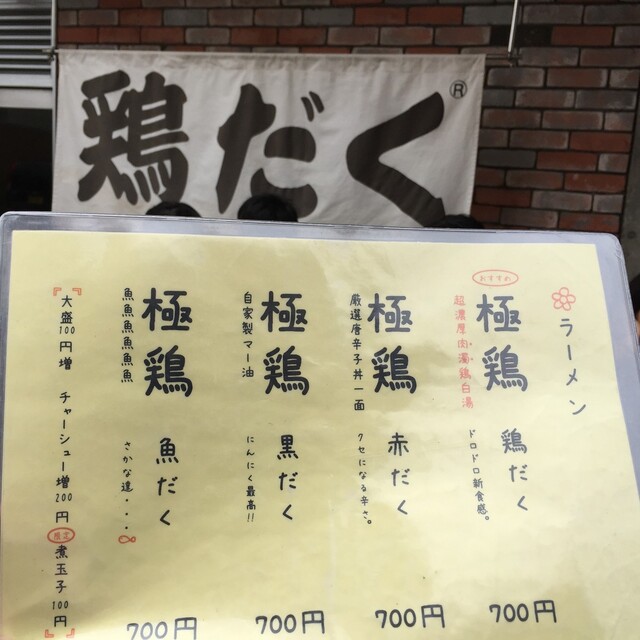 鶏だく®
ラーメン
おすすめ
極鶏 鶏だく 700円
超濃厚肉濁鶏白湯
ドロドロ新食感。
極鶏 赤だく 700円
厳選唐辛子丼一面
クセになる辛さ。
極鶏 黒だく 700円
自家製マー油
にんにく最高!!
極鶏 魚だく 700円
魚魚魚魚魚魚
さかな達・・・
『大盛100円増 チャーシュー増200円 限定 煮玉子100円』